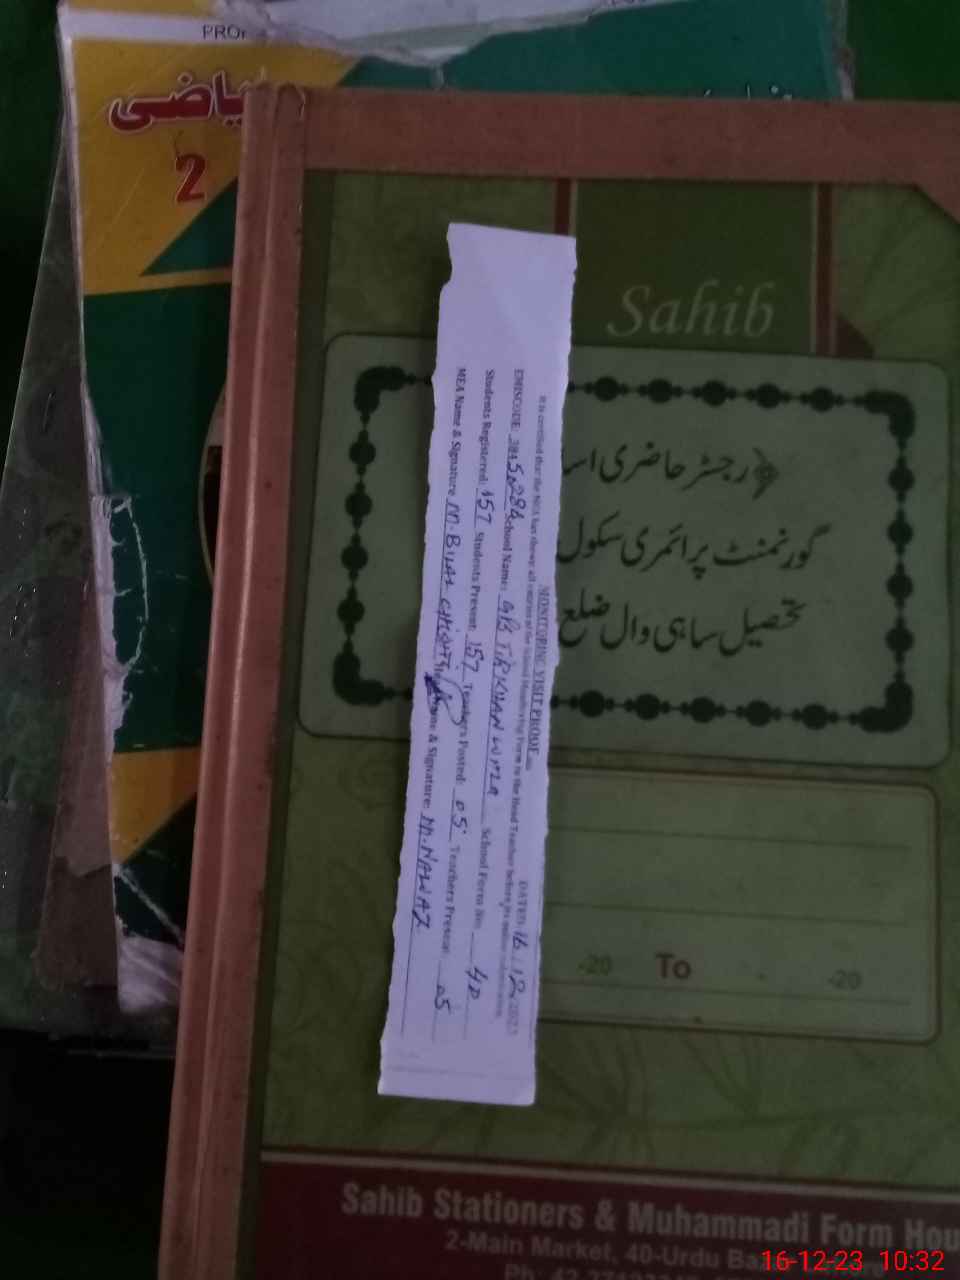 ریاضی
2
Sahib
رجسٹر حاضری
گورنمنٹ پرائمری سکول
تحصیل ساہی وال ضلع
MONITORING VISIT PROOF
DATED: 16.12.2023
It is certified that the MEA has shown all entries of the School Monitoring Form to the Head Teacher before its online submission.
EMISCODE: School Name: GPS TIRKHAN WALA School Form No: 40
Students Registered: 157 Students Present: 157 Teachers Posted: 05 Teachers Present: 05
MEA Name & Signature M. BILAL Name & Signature: M. NAWAZ
-20 To - -20
Sahib Stationers & Muhammadi Form
2-Main Market, 40-Urdu
16-12-23 10:32